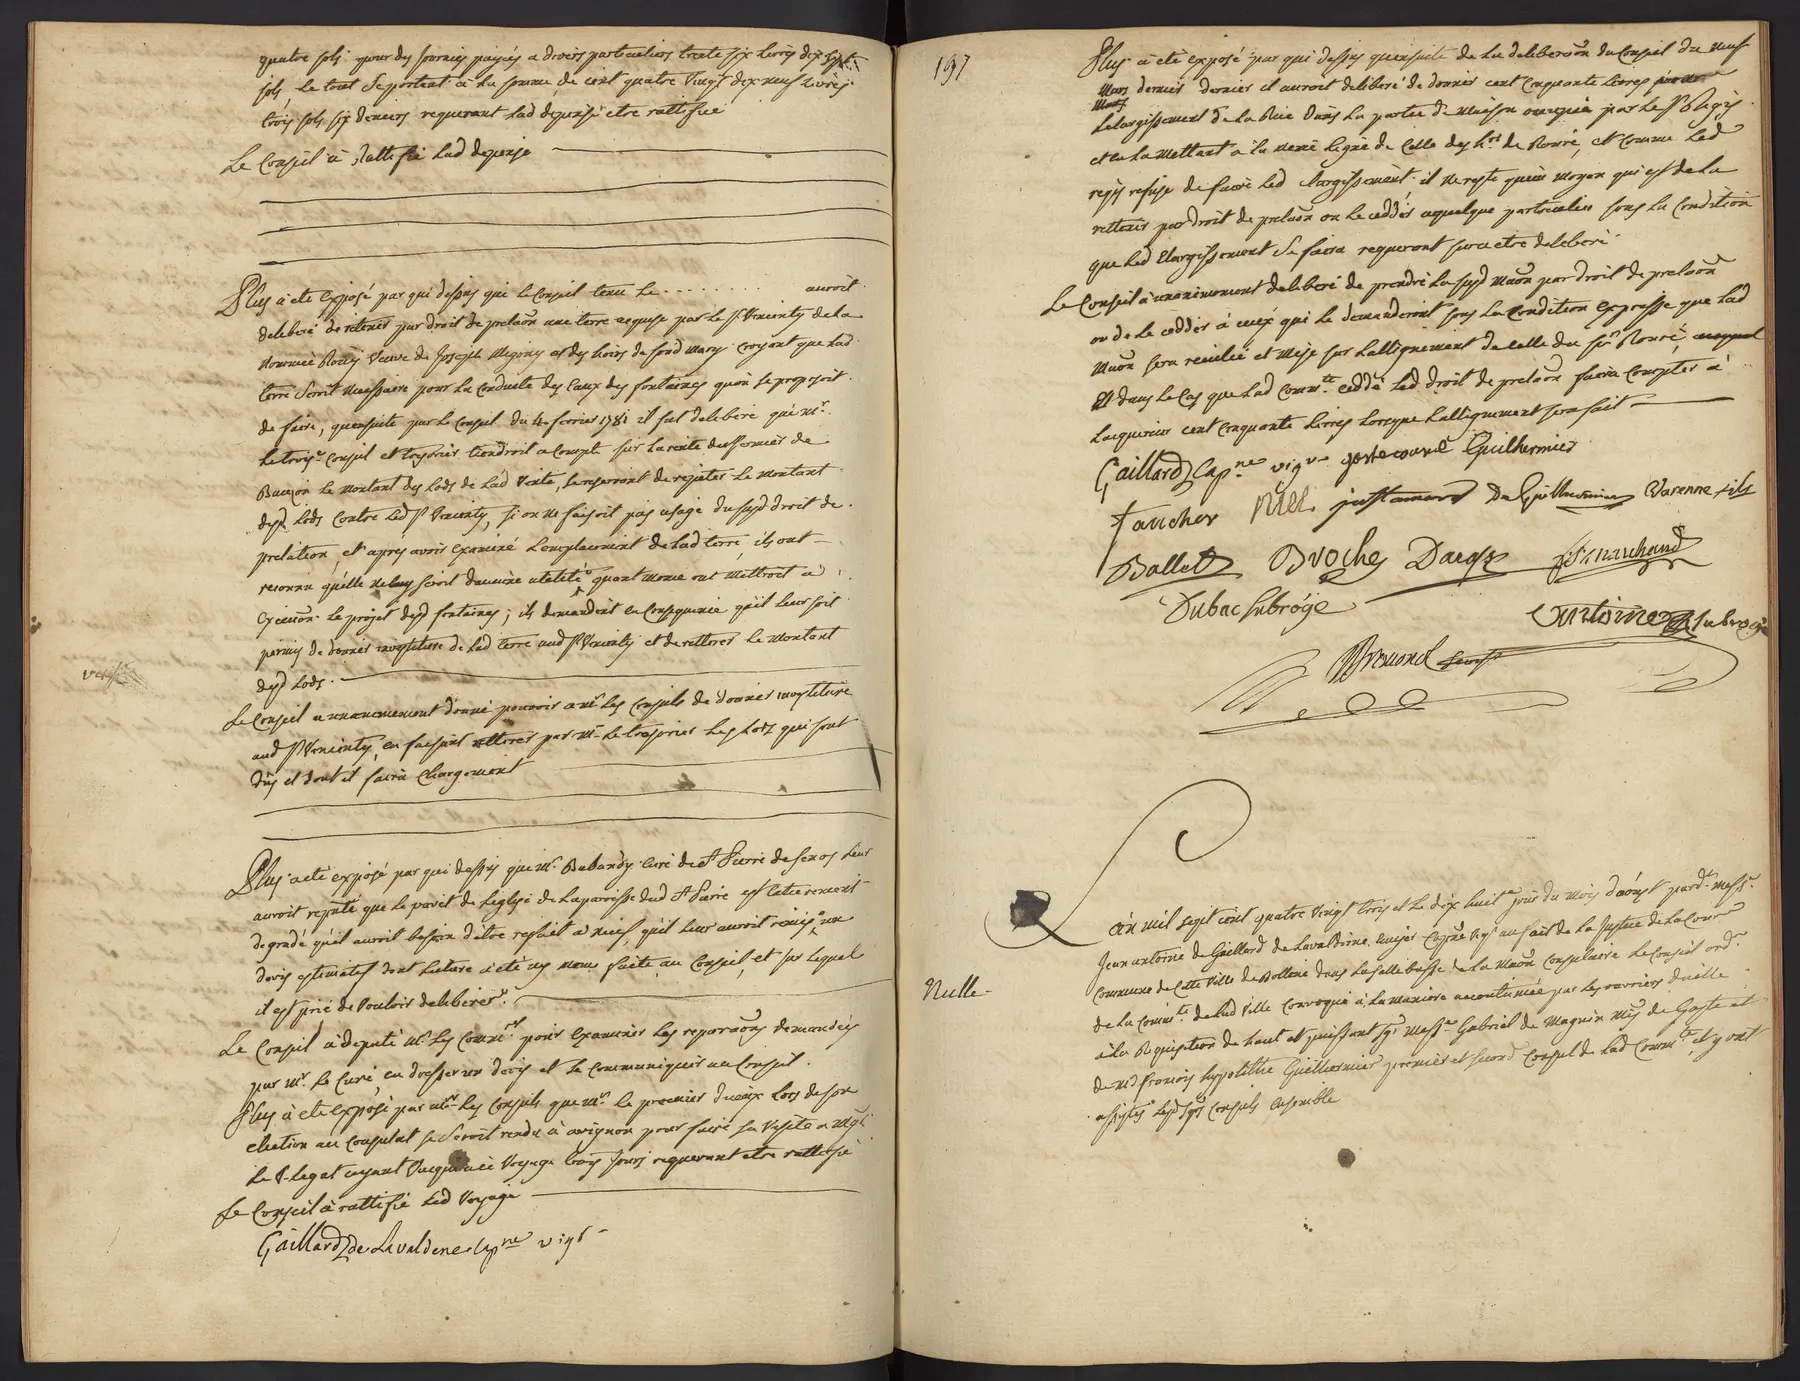 quatre sols pour des journées payées a divers particuliers trente six livres dix sept
sols le tout se portent à la somme de cent quatre vingt dix neuf livres
trois sols six deniers requerant lad depense etre rattifiée
Le Conseil à rattifié lad depense
Plus a eté exposé par qui dessus que le Conseil tenu le . . . . . . . . auroit
deliberé de retenir par droit de prelaon une terre acquise par le sr Vincenty de la
nommée veuve de Joseph et des hoirs de sond mary croyant que lad
terre seroit necessaire pour la conduite des eaux des fontaines qu'on se proposoit
de faire, qu'ensuite par le Conseil du 4e fevrier 1781 il fut deliberé que mr
le trois.e Consul et tresorier tiendroit a compte sur la rente du fermier de
le montant des lods de lad vente, se reservant de rejetter le montant
desd lods contre led sr Vincenty, si on ne faisoit pas usage du susd droit de
prelation, et apres avoir examiné l'emplacement de lad terre, ils ont
reconnu qu'elle ne leur seroit d'aucune utilité quant meme ont mettroit à
execuon le projet desd fontaines; ils demandent en consequence qu'il leur soit
permis de donner investiture de lad terre aud sr Vincenty et de rettirer le montant
desd lods.
Le Conseil a unanimement donné pouvoir a mrs les Consuls de donner investiture
aud sr Vincenty, en faisant rettirer par mr le tresorier les lods qui sont
dûs et dont il faira chargement
Plus a eté exposé par qui dessus que mr Babandy curé de st Pierre de senos leur
auroit reputé que le pavét de l'eglise de la paroisse dud st Pierre est entierement
degradé qu'il auroit besoin d'etre reffait a neuf, qu'il leur auroit remis un
devis estimatif dont lecture a eté ces mem faite au Conseil, et sur lequel
il est prié de vouloir deliberer.
Le Conseil à deputé mrs les Comres pour examiner les reparaons demandées
par mr le Curé, en dresser un devis et le communiquer au Conseil.
Plus à eté exposé par mrs les Consuls que mr le premier d'iceux lors de son
election au Consulat se seroit rendu à avignon pour faire sa visite a mgr
le V-legat ayant vacqué voyage trois jours requerant etre rattifié
Le Conseil à rattifié led voyage
Gaillard de Lavaldene cap.ne vig.r
197
Plus à eté exposé par qui dessus qu'ensuite de la deliberaon du Conseil du neuf
mars dernier dernier il auroit deliberé de donner cent cinquante livres pour
l'elargissement de la Rüe dans la partie de maison occupée par le sr Regis
et en la mettant à la meme ligne de celle des hrs de Rouré, et comme led
regis refuse de faire led elargissement, il ne reste qu'un moyen qui est de la
rettenir par droit de prelaon ou le cedder a quelque particulier sous la condition
que led elargissement se faira requerant sur ce etre deliberé
Le Conseil à unanimement deliberé de prendre la susd maon par droit de prelaon
ou de le cedder à ceux qui le demanderont sous la condition expresse que lad
maon sera reculée et mise sur l'allignement de celle du sr Rouré,
Et dans le cas que lad Comm.té cedde led droit de prelaon faira compter à
l'acquereur cent cinquante livres lorsque l'allignement sera fait
Gaillard cap.ne vig.r Guilhermier
faucher justamond De Guilhermier Varenne fils
Ballet Broche Daega J. Marchand
Dubac subrogé Antoine subrogé
Bremond secre
L'an mil sept cent quatre vingt trois et le dix huit.e jour du mois d'aôust pard.t messr
Jean antoine de Gaillard de Lavaldene, ecuyer Cap.ne Vig.r au fait de la Justice de la Cour
commune de cette Ville de Bollene dans la salle basse de la maon consulaire le Conseil ord.e
de la Comm.té de lad ville convoqué à la maniere accoutumée par les ouvriers d'icelle
à la Requisition de haut et puissant sgr messre Gabriel de Maguin mis de Gaste et
de md françois hyppolithe Guilhermier premier et second Consul de lad Comm.té, et y ont
assistés lesd sgrs Consuls ensemble
Nulle